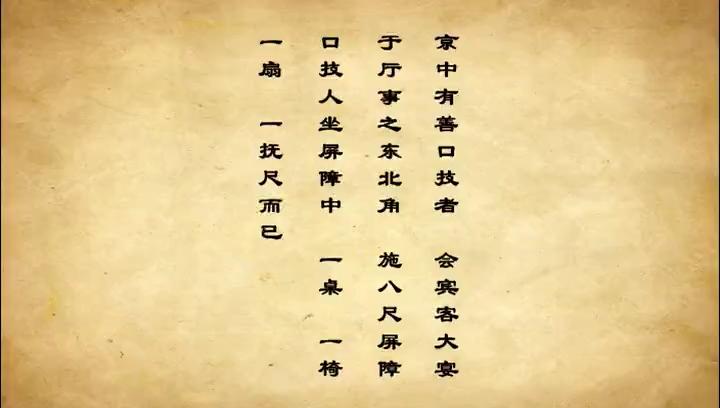 京中有善口技者 会宾客大宴
于厅事之东北角 施八尺屏障
口技人坐屏障中 一桌 一椅
一扇 一抚尺而已